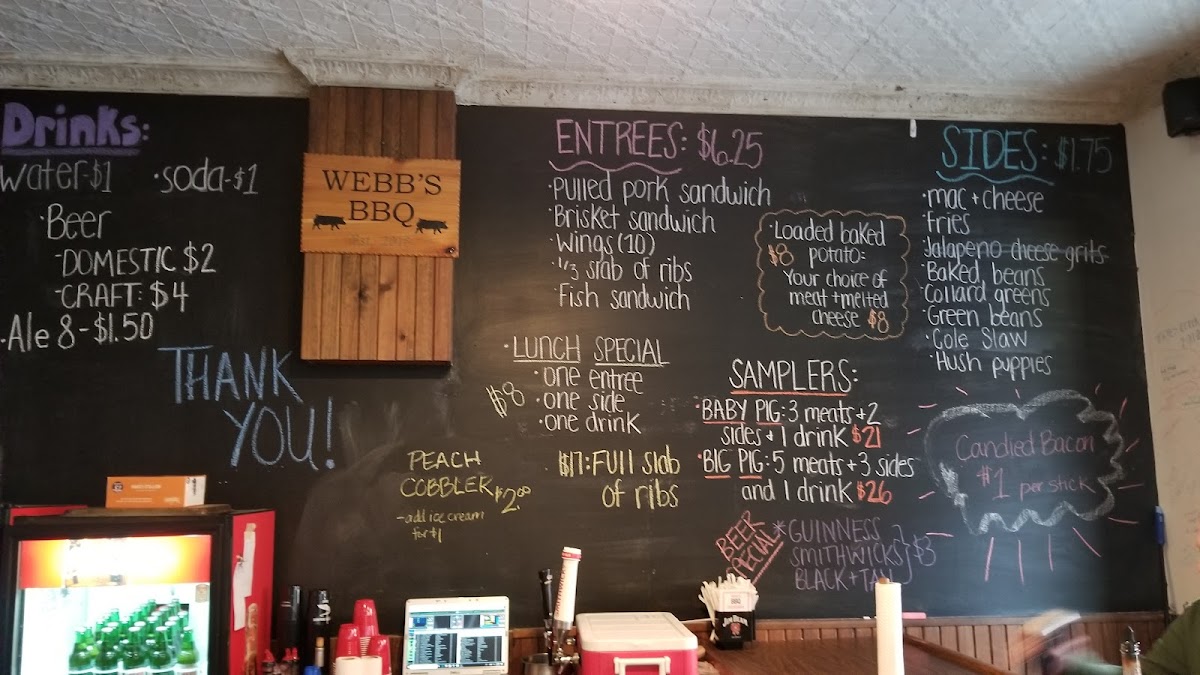 Drinks:
water-$1 •soda-$1
•Beer
-DOMESTIC $2
-CRAFT: $4
•Ale 8-$1.50
THANK
YOU!
WEBB'S
BBQ
ENTREES: $6.25
•pulled pork sandwich
•Brisket sandwich
•Wings (10)
•1/3 slab of ribs
•Fish sandwich
•Loaded baked
$8 potato:
Your choice of
meat + melted
cheese $8
SIDES: $1.75
•mac + cheese
•Fries
•Jalapeno cheese grits
•Baked beans
•Collard greens
•Green beans
•Cole Slaw
•Hush puppies
•LUNCH SPECIAL
$8
•one entree
•one side
•one drink
SAMPLERS:
•BABY PIG: 3 meats + 2
sides + 1 drink $21
•BIG PIG: 5 meats + 3 sides
and 1 drink $26
PEACH
COBBLER $2.00
-add ice cream
for $1
$17: FUll slab
of ribs
Candied Bacon
$1 per stick
BEER
SPECIAL
*GUINNESS
SMITHWICKS } $3
BLACK + TAN
JIM BEAM